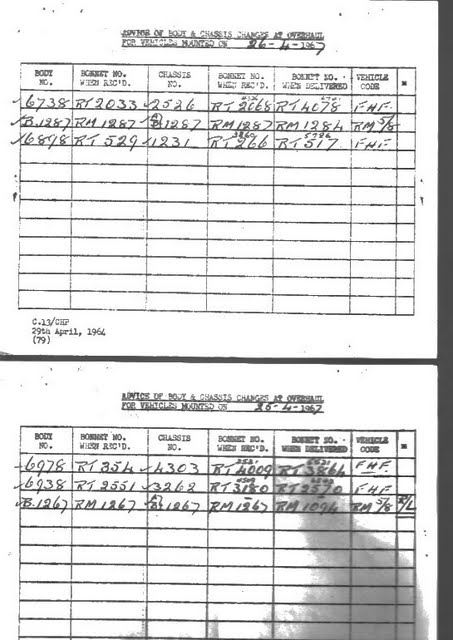 ADVICE OF BODY & CHASSIS CHANGES AT OVERHAUL
FOR VEHICLES MOUNTED ON 26-4-1967
BODY NO. BONNET NO. WHEN REC'D. CHASSIS NO. BONNET NO. WHEN REC'D. BONNET NO. WHEN DELIVERED VEHICLE CODE
✓6738 RT2033 ✓2526 RT2668 RT4078 FHF.
✓B.1287 RM1287 B1287 RM1287 RM1284 RM5/8
✓6898 RT529 ✓1231 RT266 RT517 FHF.
C.13/CHP
29th April, 1964
(79)
ADVICE OF BODY & CHASSIS CHANGES AT OVERHAUL
FOR VEHICLES MOUNTED ON 25-4-1967
BODY NO. BONNET NO. WHEN REC'D. CHASSIS NO. BONNET NO. WHEN REC'D. BONNET NO. WHEN DELIVERED VEHICLE CODE
✓6978 RT354 ✓4303 RT4009 RT3864 FHF.
✓6938 RT2551 ✓3262 RT3180 RT2570 FHF
✓B.1267 RM1267 B1267 RM1267 RM1094 RM5/8